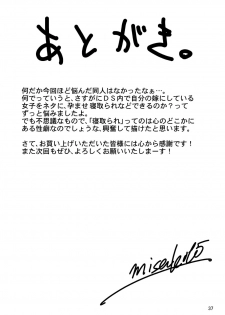 あとがき。
何だか今回ほど悩んだ同人はなかったなぁ…。
何でっていうと、さすがにDS内で自分の嫁にしている
女子をネタに、孕ませ寝取られなどできるのか?って
ずっと悩みましたよ。
でも不思議なもので、「寝取られ」ってのは心のどこかに
ある性癖なのでしょうなぁ、興奮して描けたと思います。
さて、お買い上げいただいた皆様には心から感謝です!
また次回もぜひ、よろしくお願いいたしまーす!
37